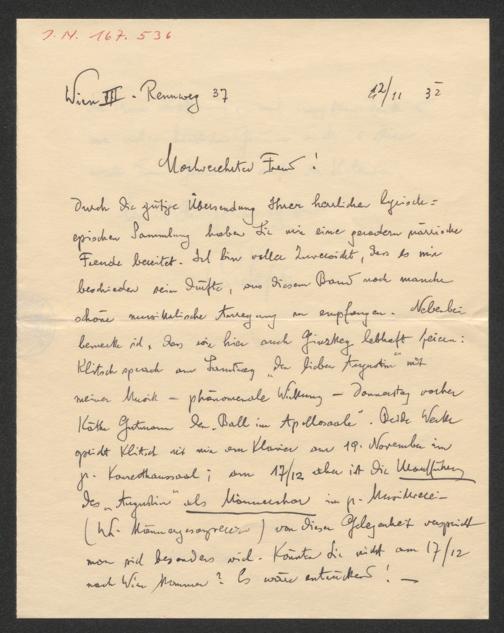 J.N. 167.536
Wien III. Rennweg 37 12/11 32
Hochverehrter Freund!
Durch die gütige Übersendung Ihrer herrlichen lyrisch=
epischen Sammlung haben Sie mir eine geradezu närrische
Freude bereitet. Ich bin voller Zuversicht, dass es mir
beschieden sein dürfte, aus diesem Band noch manche
schöne musikalische Anregung zu empfangen. Nebenbei
bemerke ich, dass wir hier auch Ginzkey lebhaft feiern:
Klitsch sprach am Samstag „Der liebe Augustin" mit
meiner Musik – phänomenale Wirkung – Donnerstag vorher
Käthe Gutmann den „Ball im Apollosaale". Beide Werke
spricht Klitsch mit mir am Klavier am 19. November im
gr. Konzerthaussaal; am 17/12 aber ist die Uraufführung
des „Augustin" als Männerchor im gr. Musikverein
(Wr. Männergesangverein) von dieser Gelegenheit verspricht
man sich besonders viel. Könnten Sie nicht am 17/12
nach Wien kommen? Es wäre entzückend! —